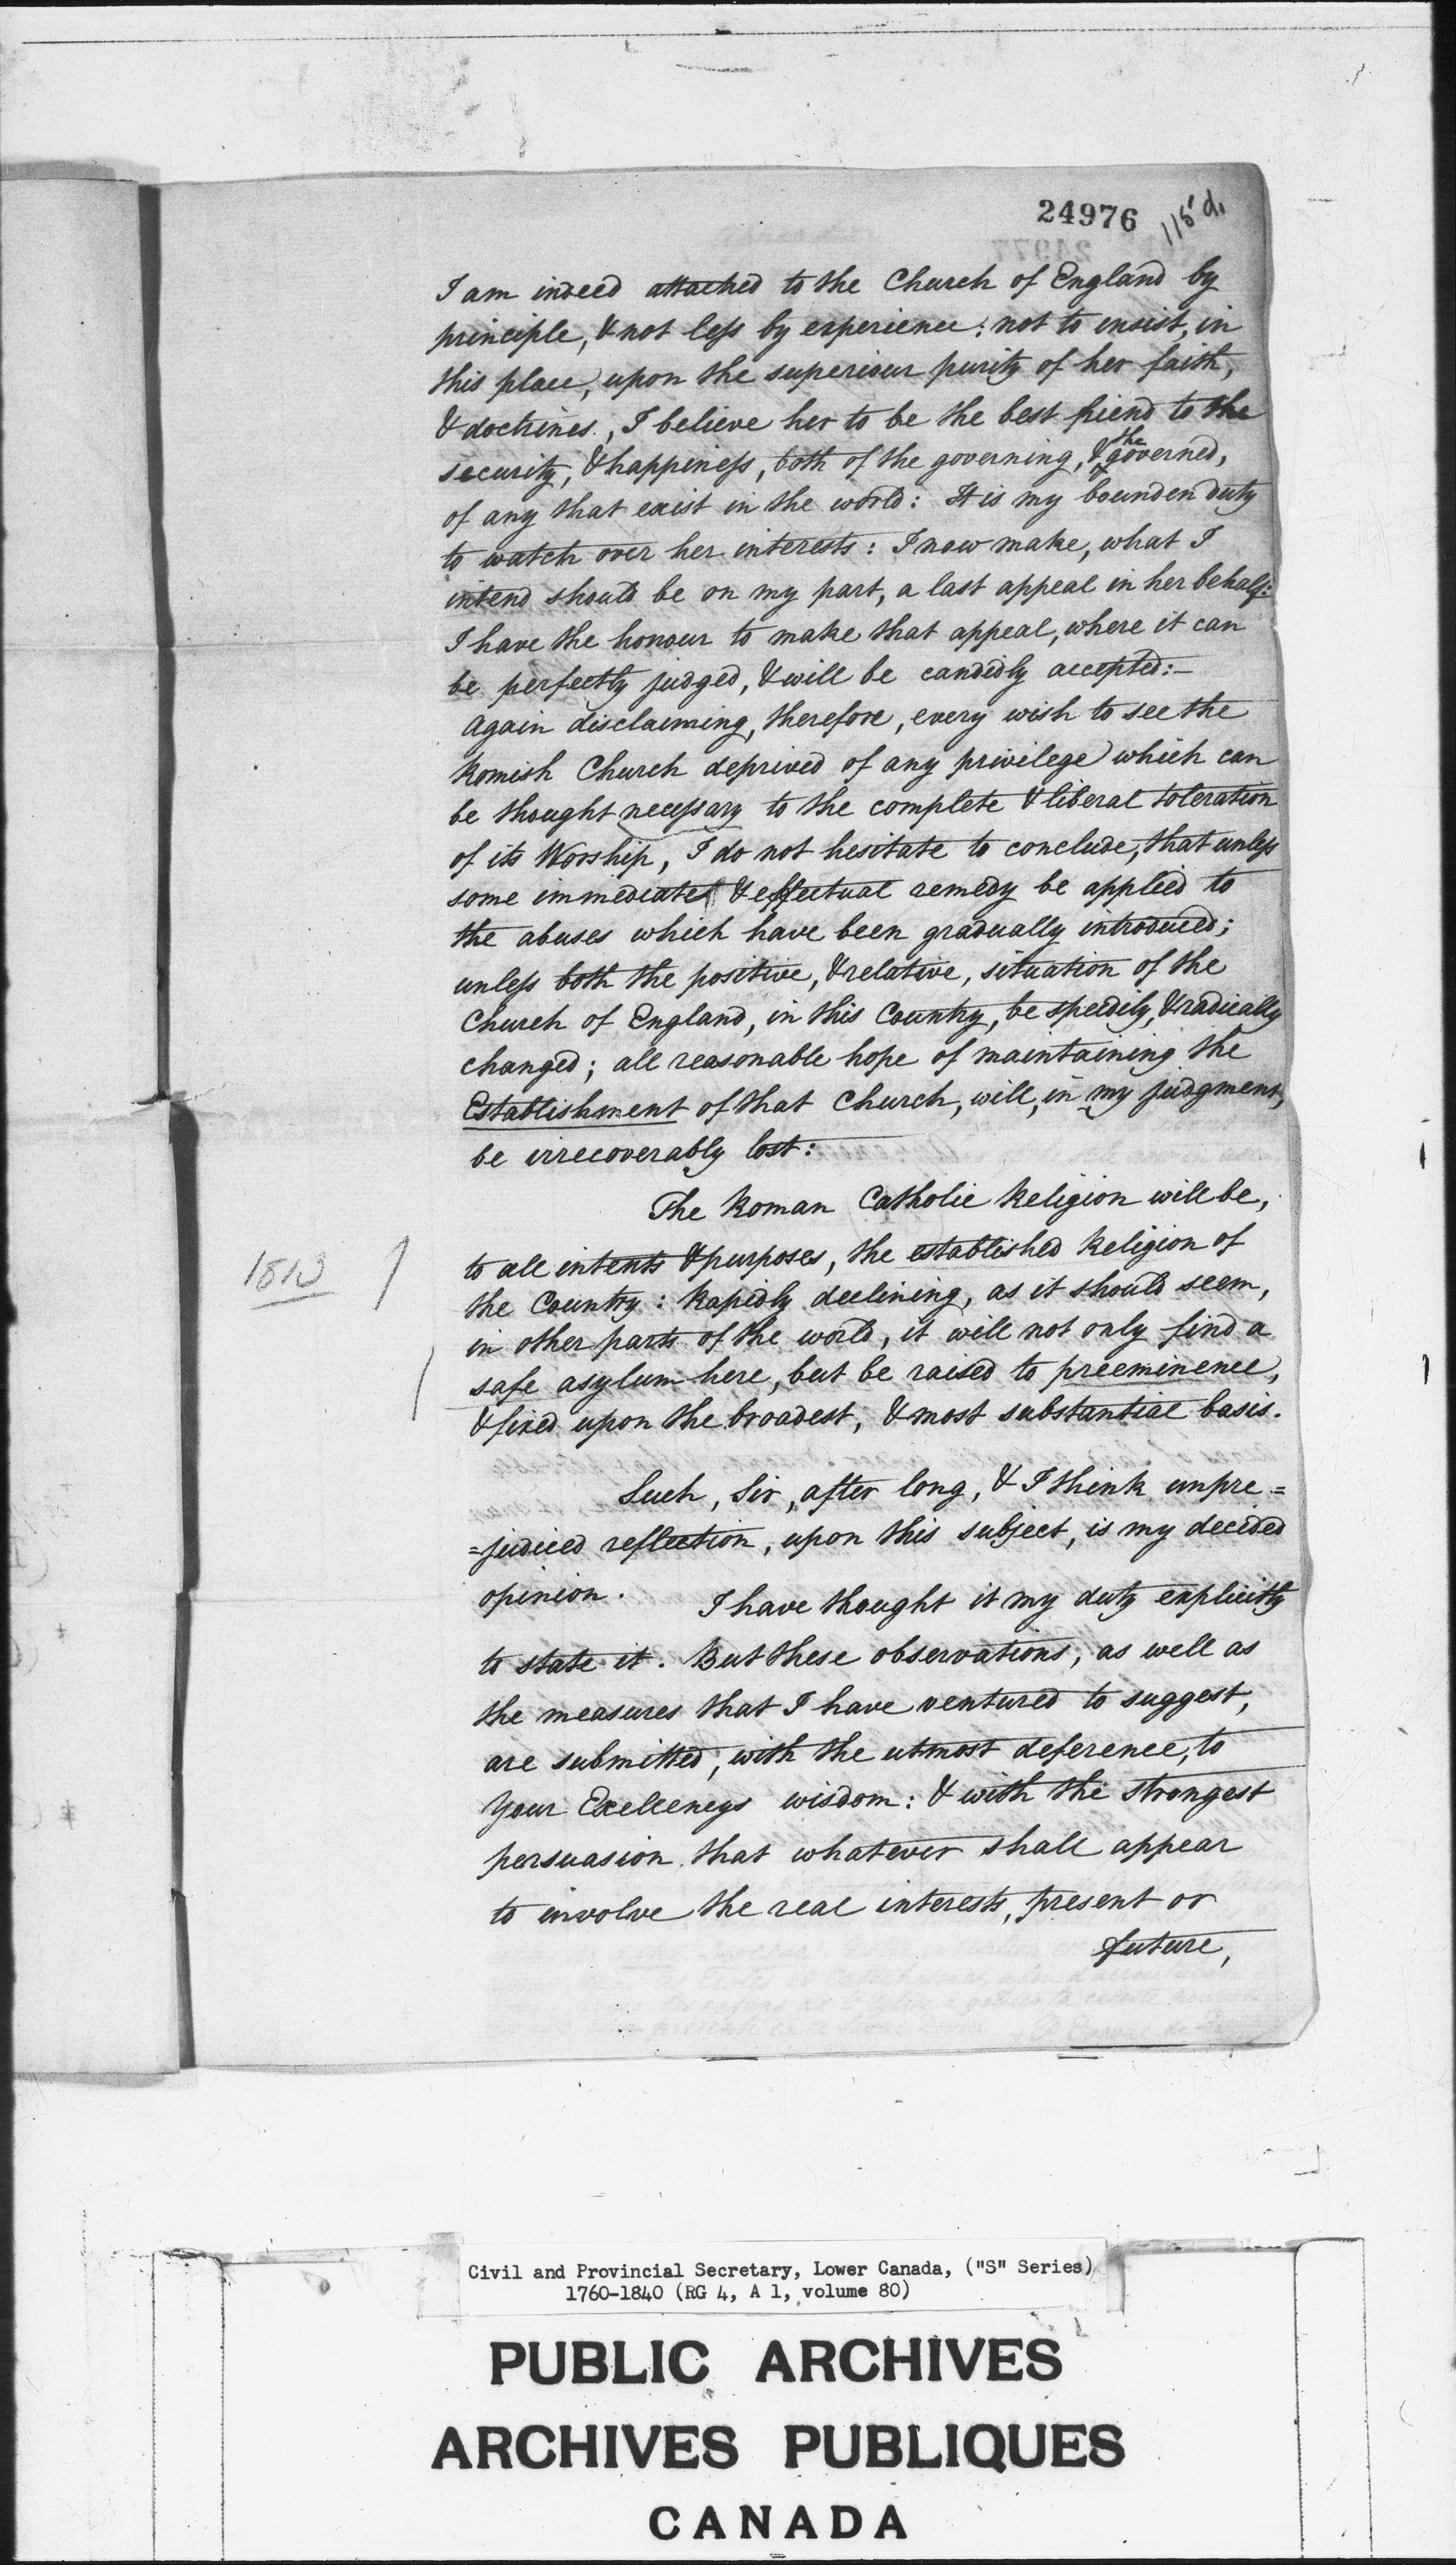 24976
115 d.
I am indeed attached to the Church of England by
principle, & not less by experience: not to insist, in
this place, upon the superiour purity of her faith,
& doctrines, I believe her to be the best friend to the
security, & happiness, both of the governing, & the governed,
of any that exist in the world: It is my bounden duty
to watch over her interests: I now make, what I
intend should be on my part, a last appeal in her behalf:
I have the honour to make that appeal, where it can
be perfectly judged, & will be candidly accepted:-
Again disclaiming, therefore, every wish to see the
Romish Church deprived of any privilege which can
be thought necessary to the complete & liberal toleration
of its Worship, I do not hesitate to conclude, that unless
some immediate & effectual remedy be applied to
the abuses which have been gradually introduced;
unless both the positive, & relative, situation of the
Church of England, in this Country, be speedily, & radically
changed; all reasonable hope of maintaining the
Establishment of that Church, will, in my judgment,
be irrecoverably lost:
The Roman Catholic Religion will be,
1813
to all intents & purposes, the established Religion of
the Country: Rapidly declining, as it should seem,
in other parts of the world, it will not only find a
safe asylum here, but be raised to preeminence,
& fixed upon the broadest, & most substantial basis.
Such, Sir, after long, & I think unpre=
=judiced reflection, upon this subject, is my decided
opinion. I have thought it my duty explicitly
to state it. But these observations, as well as
the measures that I have ventured to suggest,
are submitted, with the utmost deference, to
Your Excellencys wisdom: & with the strongest
persuasion that whatever shall appear
to involve the real interests, present or
future,
Civil and Provincial Secretary, Lower Canada, ("S" Series)
1760-1840 (RG 4, A 1, volume 80)
PUBLIC ARCHIVES
ARCHIVES PUBLIQUES
CANADA